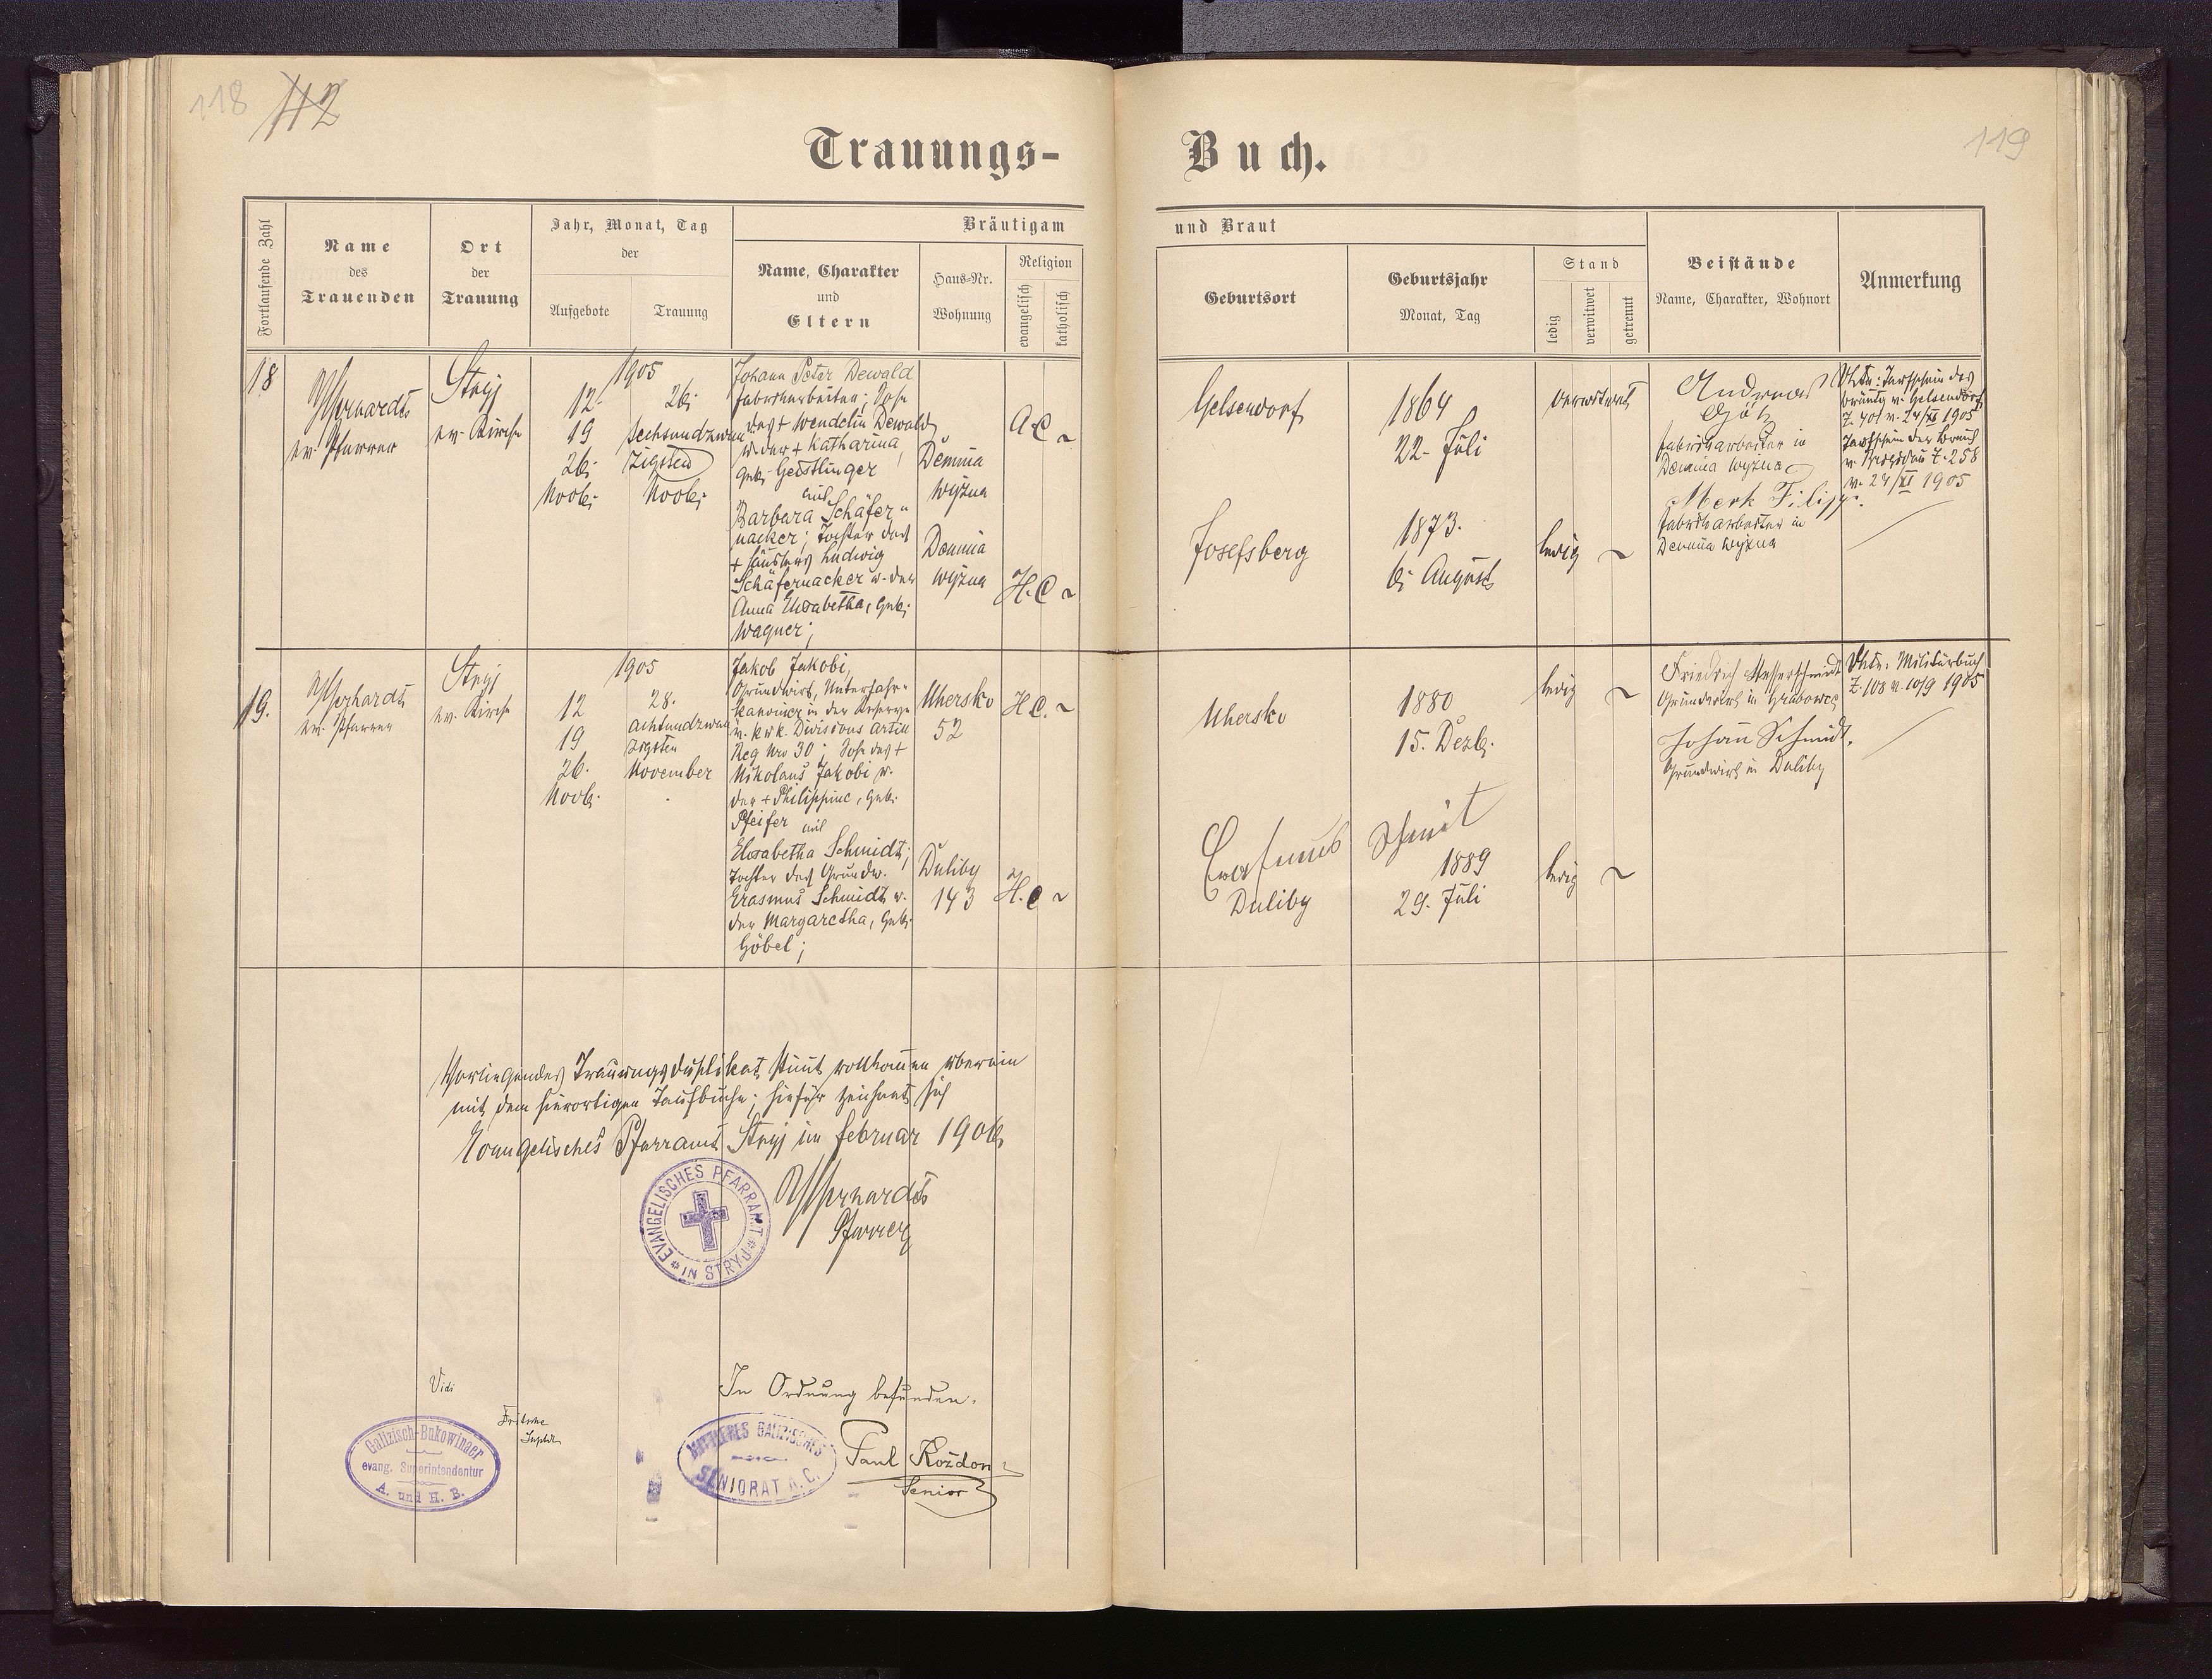 118 112
119
Trauungs-
Buch.
Fortlaufende Zahl
Name
des
Trauenden
Ort
der
Trauung
Jahr, Monat, Tag
der
Aufgebote
Trauung
Bräutigam
Name, Charakter
und
Eltern
Haus-Nr.
Wohnung
Religion
evangelisch
katholisch
und Braut
Geburtsort
Geburtsjahr
Monat, Tag
Stand
ledig
verwitwet
getrennt
Beistände
Name, Charakter, Wohnort
Anmerkung
18
ev. Pfarrer
Stryj
ev. Kirche
1905
12.
19
26.
Novbr.
26.
sechsundzwan
zigsten
Novbr.
Johann Peter Dewald
Fabriksarbeiter; Sohn
des + Wendelin Dewald
u. der + Katharina,
geb. Geistlinger
mit
Barbara Schäfer-
nacker; Tochter des
+ Häuslers Ludwig
Schäfernacker u. der
Anna Elisabetha, geb.
Wagner;
Demnia
wyżna
Demnia
wyżna
A.C.
H.C.
Gelsendorf
Josefsberg
1864
22. Juli
1873.
6. August
verwitwet
ledig
Andreas
Götz
Fabriksarbeiter in
Demnia wyżna
Merk Filipp.
Fabriksarbeiter in
Demnia wyżna
Taufschein des
Bräutig. v. Gelsendorf
Z. 401 v. 24/XI 1905
Taufschein der Braut
v. Z. 258
v. 24/XI 1905
19.
ev. Pfarrer
Stryj
ev. Kirche
1905
12
19
26.
Novb.
28.
achtundzwan
zigsten
November
Jakob Jakobi,
Grundwirt, Unterfahr-
kanonier in der Reserve
d. k. u. k. Divisions Artill
Reg Nro 30; Sohn des +
Nikolaus Jakobi u.
der + Philippine, geb.
Pfeifer mit
Elisabetha Schmidt;
Tochter des Grundw.
Erasmus Schmidt u.
der Margaretha, geb.
Göbel;
Uhersko
52
Duliby
143
H.C.
H.C.
Uhersko
1880
15. Dezb.
ledig
Erasmus Schmit
Duliby
1889
29. Juli
ledig
Friedrich Messerschmidt
Grundwirt in Grabowce
Johann Schmidt.
Grundwirt in Duliby
Militärbuch
Z. 108 v. 10/9 1905
Vorliegendes Trauungsduplikat stimt vollkomen überein
mit dem hierortigen Taufbuche; hiefür zeichnet sich
Evangelisches Pfarramt Stryj im Februar 1906
Pfarrer
EVANGELISCHES PFARRAMT
* IN STRYJ *
Vidi
Fritsche
Suptdt
Galizisch-Bukowinaer
evang. Superintendentur
A. und H. B.
In Ordnung befunden.
MITTLERES GALIZISCHES
SENIORAT A. C.
Paul Kożdoń
Senior